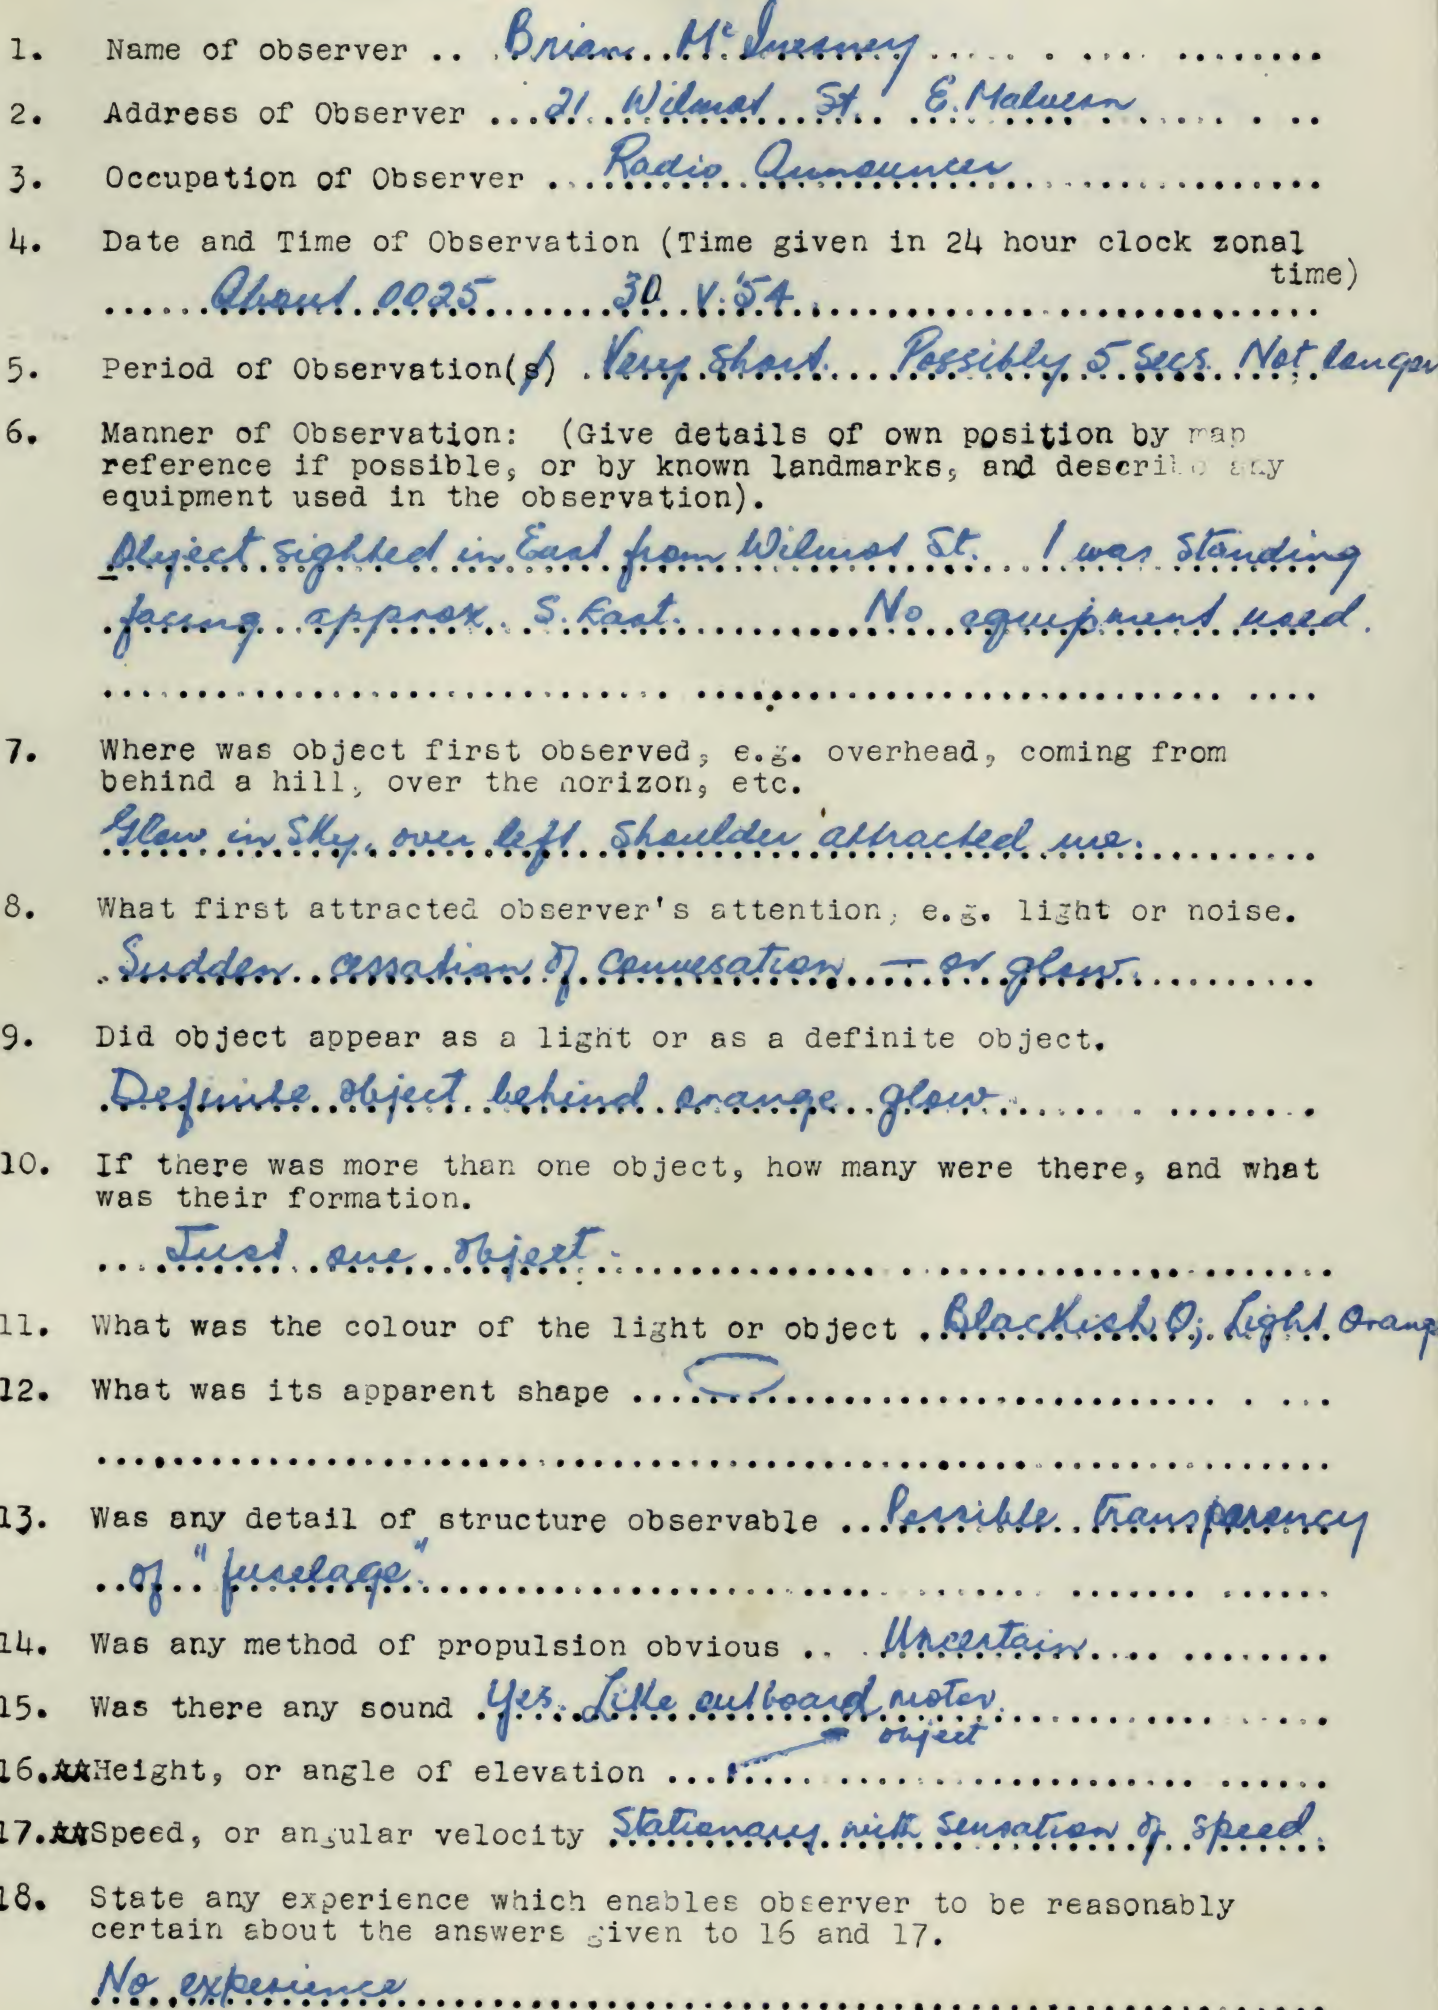 1. Name of observer .. Brian Mc
2. Address of Observer ... 21 Wilmot St. E. Malvern
3. Occupation of Observer ... Radio Announcer
4. Date and Time of Observation (Time given in 24 hour clock zonal
time)
About 0025 30 V. '54.
5. Period of Observation(s) . Very short. Possibly 5 secs. Not longer
6. Manner of Observation: (Give details of own position by map
reference if possible, or by known landmarks, and describe any
equipment used in the observation).
Object sighted in East from Wilmot St. I was standing
facing approx. S. East. No equipment used.
7. Where was object first observed, e.g. overhead, coming from
behind a hill, over the horizon, etc.
Glow in sky, over left shoulder attracted me.
8. What first attracted observer's attention, e.g. light or noise.
Sudden cessation of convesation — or glow.
9. Did object appear as a light or as a definite object.
Definite object behind orange glow
10. If there was more than one object, how many were there, and what
was their formation.
Just one object.
11. What was the colour of the light or object . Blackish O; Light Orang
12. What was its apparent shape ...
13. Was any detail of structure observable ... Possible transparency
of "fuselage".
14. Was any method of propulsion obvious .. Uncertain
15. Was there any sound Yes. Like outboard motor.
object
16. Height, or angle of elevation ...
17. Speed, or angular velocity Stationary with sensation of speed.
18. State any experience which enables observer to be reasonably
certain about the answers given to 16 and 17.
No experience